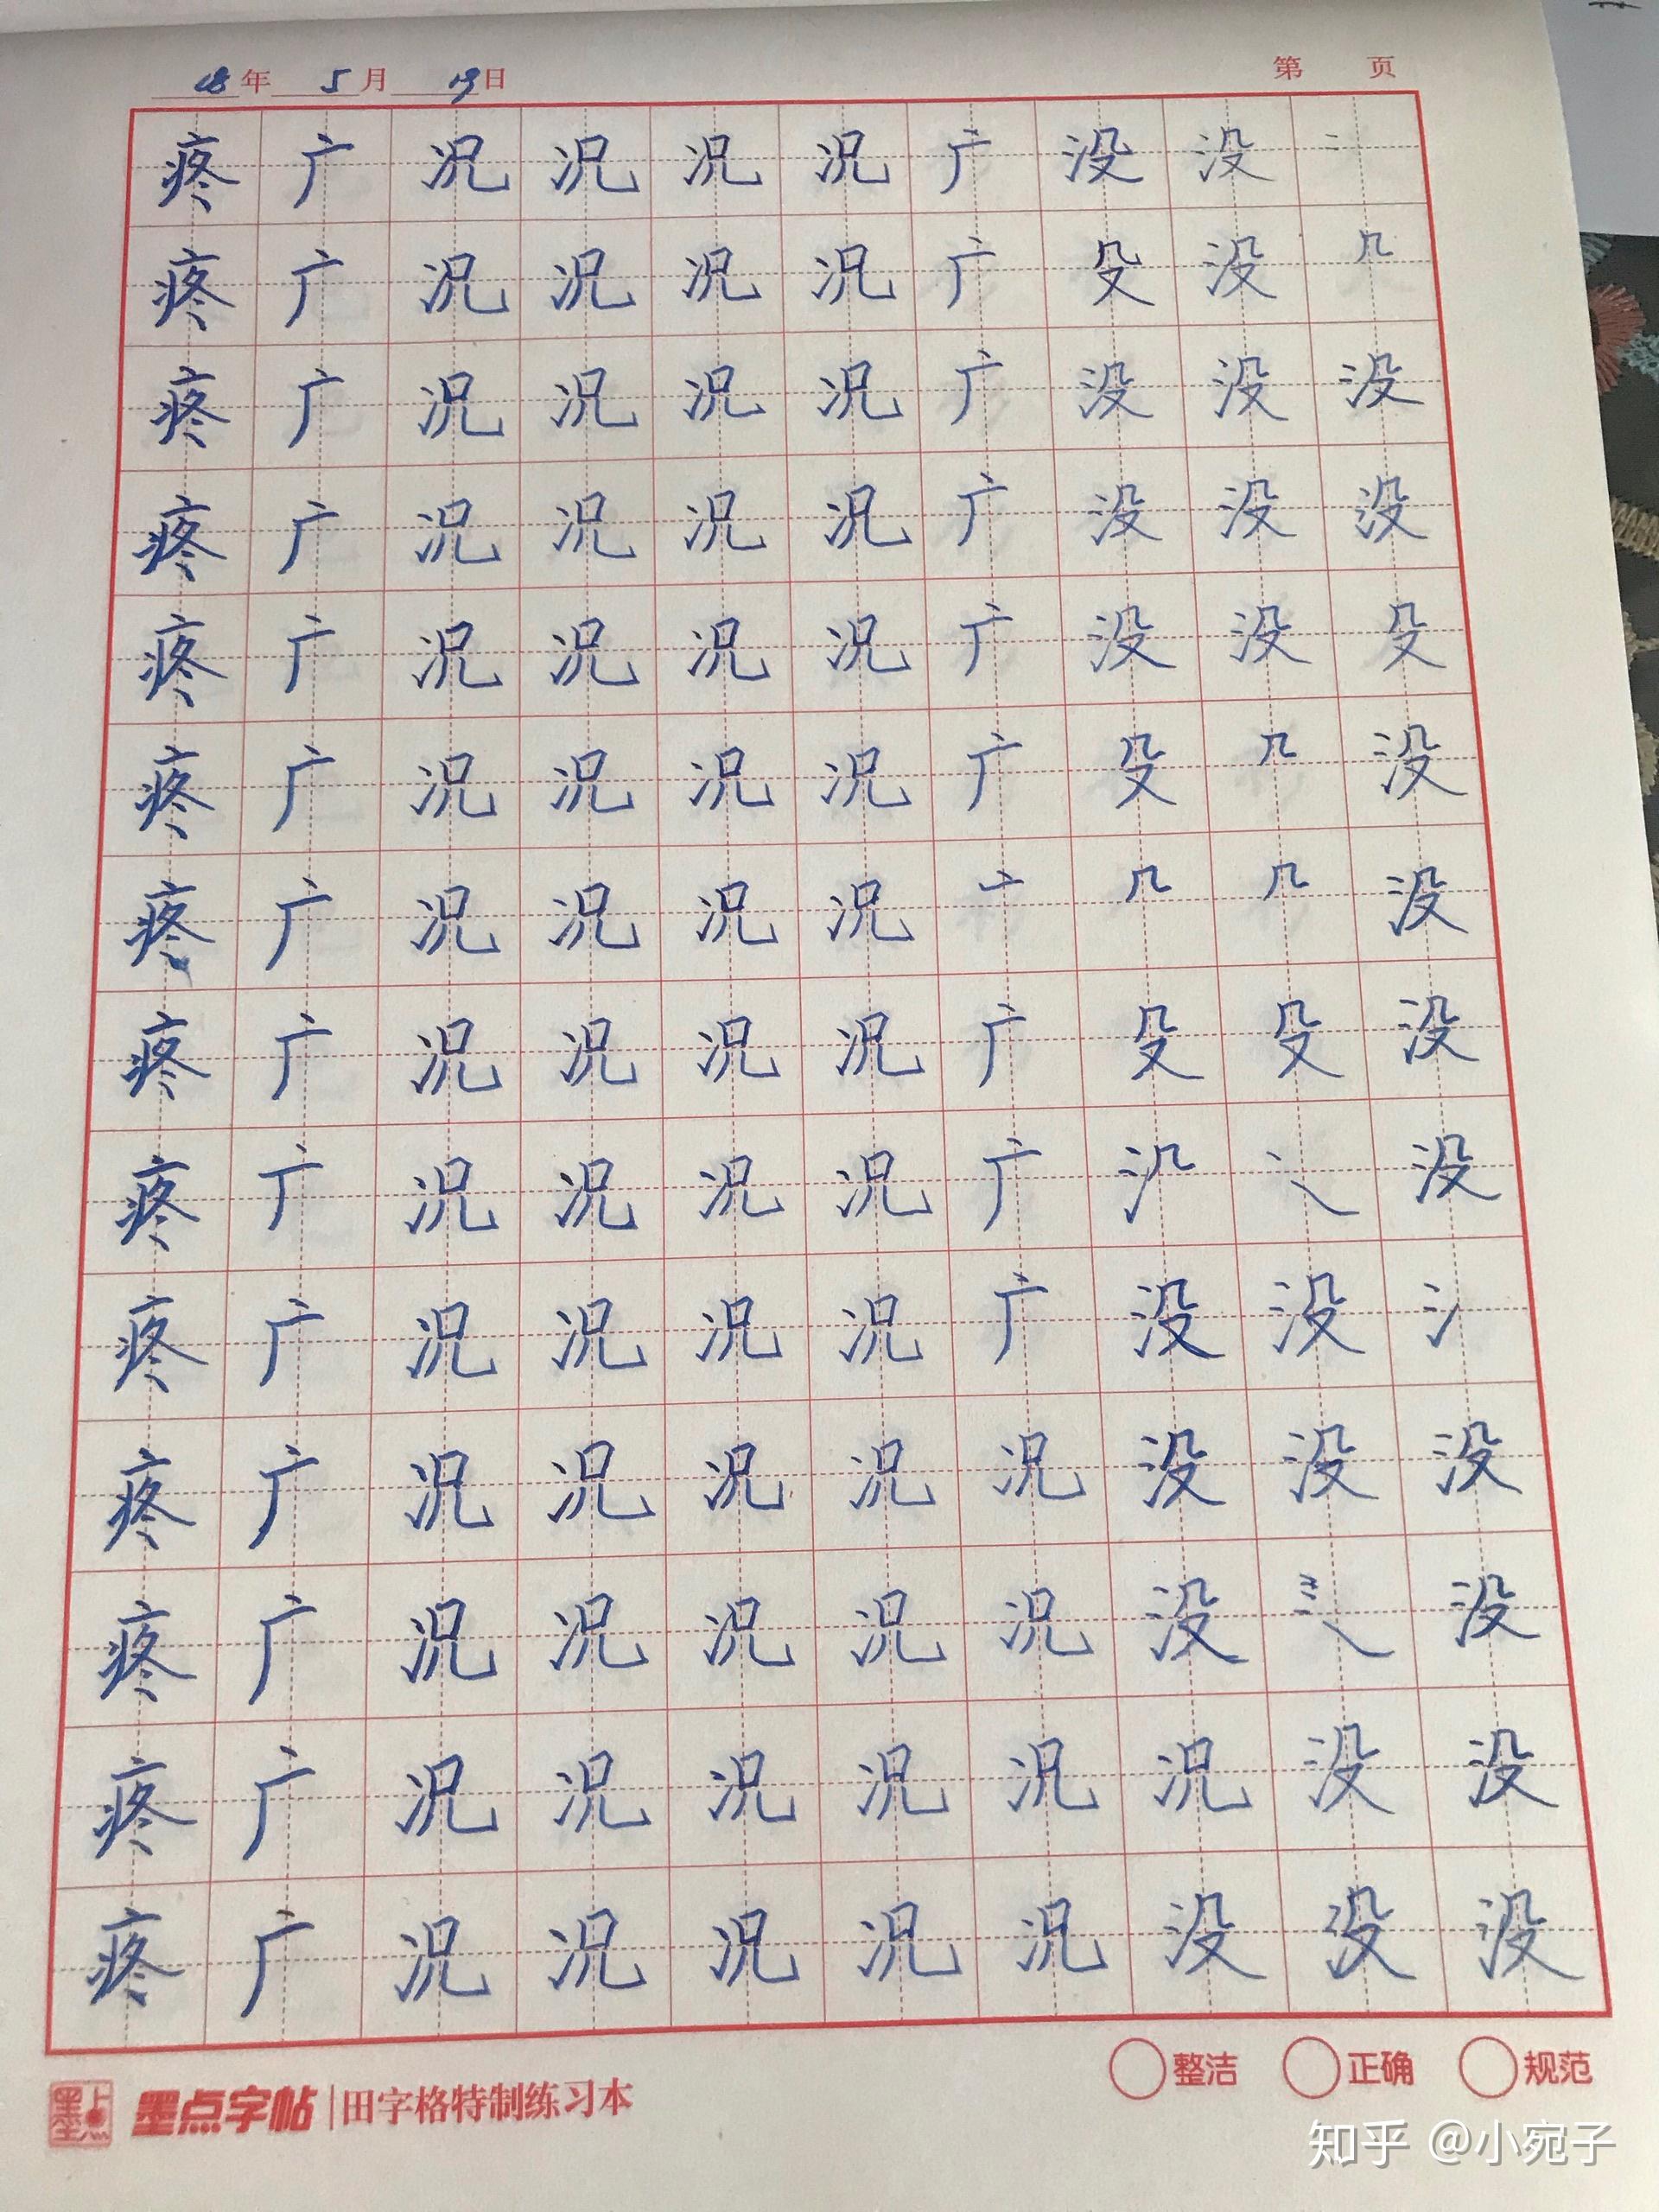 18年 5月 19日 第 页
疼 广 况 况 况 况 广 没 没
疼 广 况 况 况 况 广 殳 没 几
疼 广 况 况 况 况 广 没 没 没
疼 广 况 况 况 况 广 没 没 没
疼 广 况 况 况 况 广 没 没 殳
疼 广 况 况 况 况 广 殳 几 没
疼 广 况 况 况 况 亠 几 几 没
疼 广 况 况 况 况 广 殳 殳 没
疼 广 况 况 况 况 广 没
疼 广 况 况 况 况 广 没 没 氵
疼 广 况 况 况 况 况 没 没 没
疼 广 况 况 况 况 况 没 没
疼 广 况 况 况 况 况 况 没 没
疼 广 况 况 况 况 况 没 没 没
整洁 正确 规范
墨点 墨点字帖 | 田字格特制练习本
知乎 @小宛子